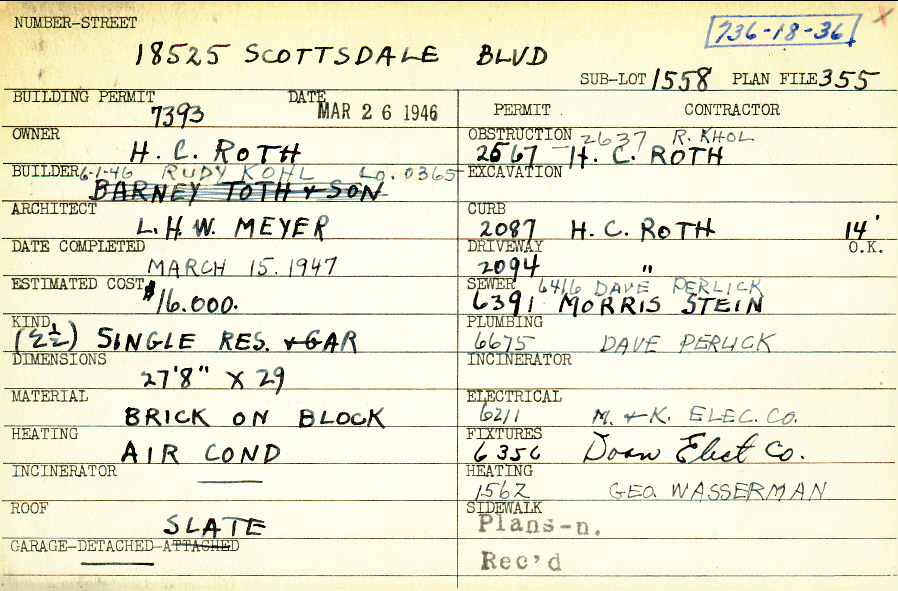 NUMBER-STREET
736-18-36
18525 SCOTTSDALE BLVD
SUB-LOT 1558 PLAN FILE 355
BUILDING PERMIT 7393 DATE MAR 26 1946
OWNER H. C. ROTH
BUILDER 6-1-46 RUDY KOHL Lo. 0365
BARNEY TOTH & SON
ARCHITECT L. H. W. MEYER
DATE COMPLETED MARCH 15. 1947
ESTIMATED COST $16.000.
KIND (2½) SINGLE RES. & GAR
DIMENSIONS 27'8" X 29
MATERIAL BRICK ON BLOCK
HEATING AIR COND
INCINERATOR
ROOF SLATE
GARAGE-DETACHED-ATTACHED
PERMIT CONTRACTOR
OBSTRUCTION 2637 R. KHOL
2567 H. C. ROTH
EXCAVATION
CURB
2087 H. C. ROTH 14'
DRIVEWAY O.K.
2094 "
SEWER 6416 DAVE PERLICK
6391 MORRIS STEIN
PLUMBING
6675 DAVE PERLICK
INCINERATOR
ELECTRICAL
6211 M. & K. ELEC. CO.
FIXTURES
6356 Doan Elect Co.
HEATING
1562 GEO. WASSERMAN
SIDEWALK
Plans-n.
Rec'd